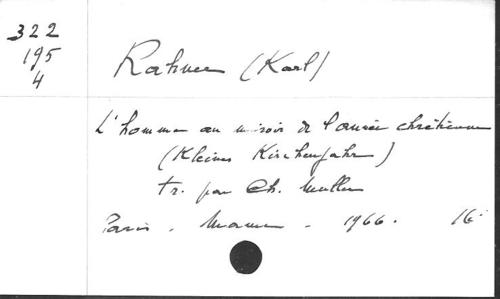 322
195
4
Rahner (Karl)
L'homme au miroir de l'année chrétienne
(Kleines Kirchenjahr)
tr. par Ch. Muller
Paris. Mame. 1966. 16°